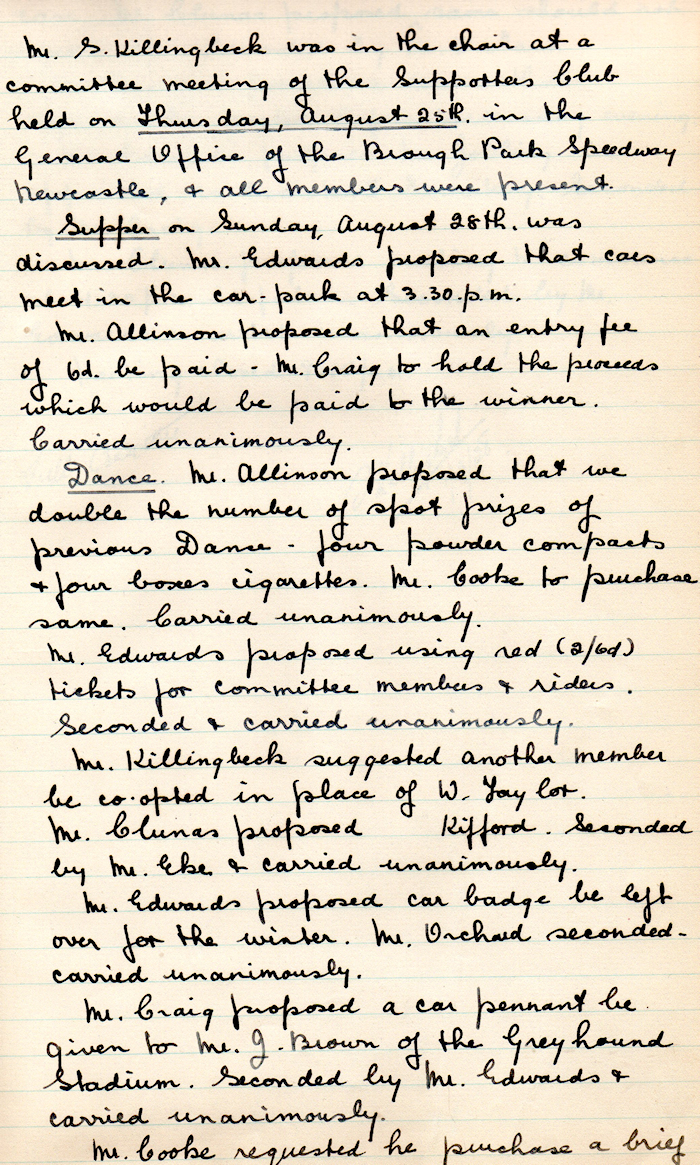 Mr. S. Killingbeck was in the chair at a
committee meeting of the Supporters Club
held on Thursday, August 25th. in the
General Office of the Brough Park Speedway
Newcastle, & all members were present.
Supper on Sunday, August 28th. was
discussed. Mr. Edwards proposed that cars
meet in the car-park at 3.30.p.m.
Mr. Allinson proposed that an entry fee
of 6d. be paid - Mr. Craig to hold the proceeds
which would be paid to the winner.
Carried unanimously.
Dance. Mr. Allinson proposed that we
double the number of spot prizes of
previous Dance - four powder compacts
& four boxes cigarettes. Mr. Cooke to purchase
same. Carried unanimously.
Mr. Edwards proposed using red (2/6d)
tickets for committee members & riders.
Seconded & carried unanimously.
Mr. Killingbeck suggested another member
be co-opted in place of W. Taylor.
Mr. Clunas proposed Kifford. Seconded
by Mr. Eke & carried unanimously.
Mr. Edwards proposed car badge be left
over for the winter. Mr. Orchard seconded -
carried unanimously.
Mr. Craig proposed a car pennant be
given to Mr. J. Brown of the Greyhound
Stadium. Seconded by Mr. Edwards &
carried unanimously.
Mr. Cooke requested he purchase a brief